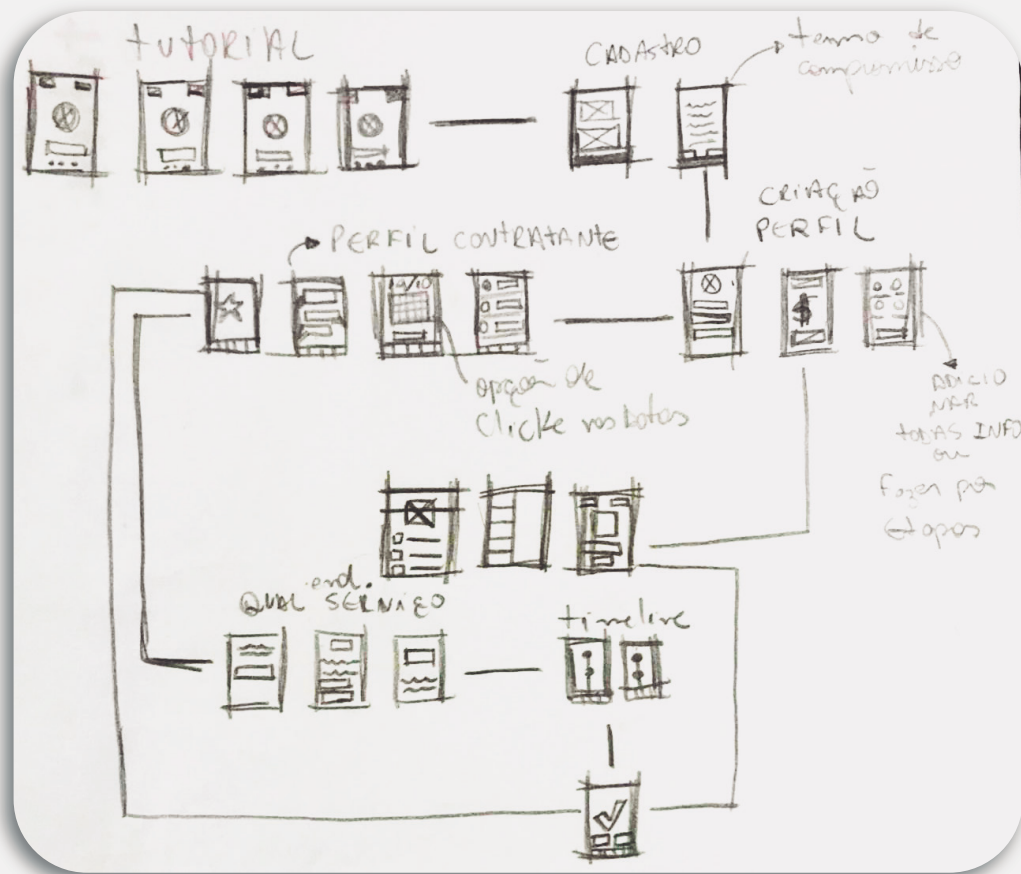 tUtORIAL
CADAStRO
termo de
compromisso
CRIAÇÃO
PERFIL
PERFIL CONTRATANTE
opção de
Clicke nos botos
ADICIO
NAR
tODAS INFO
ou
fazer por
etapas
end.
QUAL SERVIÇO
timeline